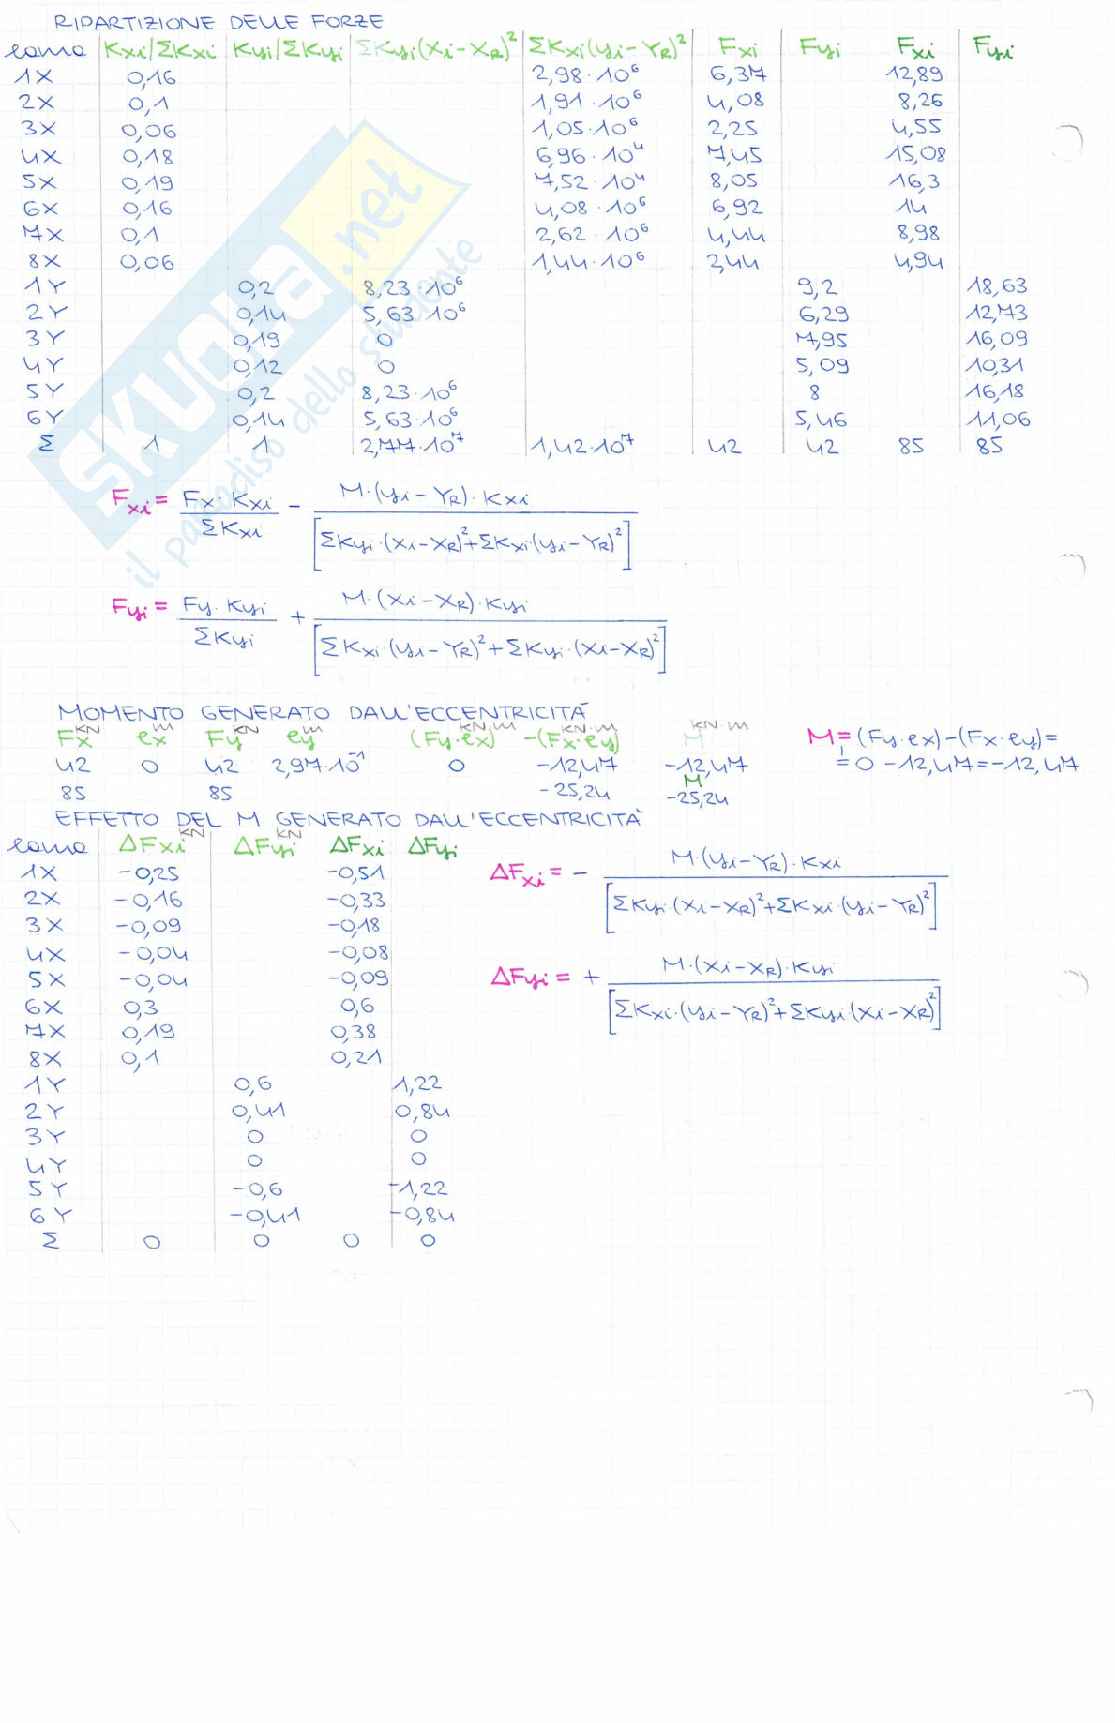 RIPARTIZIONE DELLE FORZE
lama Kxi/ΣKxi Kyi/ΣKyi ΣKyi(Xi-XR)² ΣKxi(yi-YR)² Fxi Fyi Fxi Fyi
1X 0,16 2,98·10⁶ 6,37 12,89
2X 0,1 1,91·10⁶ 4,08 8,26
3X 0,06 1,05·10⁶ 2,25 4,55
4X 0,18 6,96·10⁴ 7,45 15,08
5X 0,19 7,52·10⁴ 8,05 16,3
6X 0,16 4,08·10⁶ 6,92 14
7X 0,1 2,62·10⁶ 4,44 8,98
8X 0,06 1,44·10⁶ 2,44 4,94
1Y 0,2 8,23·10⁶ 9,2 18,63
2Y 0,14 5,63·10⁶ 6,29 12,73
3Y 0,19 0 7,95 16,09
4Y 0,12 0 5,09 10,31
5Y 0,2 8,23·10⁶ 8 16,18
6Y 0,14 5,63·10⁶ 5,46 11,06
Σ 1 1 2,77·10⁷ 1,42·10⁷ 42 42 85 85
Fxi = Fx·Kxi / ΣKxi - M·(yi-YR)·Kxi / [ΣKyi·(Xi-XR)²+ΣKxi·(yi-YR)²]
Fyi = Fy·Kyi / ΣKyi + M·(Xi-XR)·Kyi / [ΣKxi·(yi-YR)²+ΣKyi·(Xi-XR)²]
MOMENTO GENERATO DALL'ECCENTRICITÀ
KN m KN m KN·m KN·m KN·m
Fx ex Fy ey (Fy·ex) -(Fx·ey) M M=(Fy·ex)-(Fx·ey)=
42 0 42 2,97·10⁻¹ 0 -12,47 -12,47 =0-12,47=-12,47
M
85 85 -25,24 -25,24
EFFETTO DEL M GENERATO DALL'ECCENTRICITÀ
KN KN
lama ΔFxi ΔFyi ΔFxi ΔFyi
1X -0,25 -0,51
2X -0,16 -0,33
3X -0,09 -0,18
4X -0,04 -0,08
5X -0,04 -0,09
6X 0,3 0,6
7X 0,19 0,38
8X 0,1 0,21
1Y 0,6 1,22
2Y 0,41 0,84
3Y 0 0
4Y 0 0
5Y -0,6 -1,22
6Y -0,41 -0,84
Σ 0 0 0 0
ΔFxi = - M·(yi-YR)·Kxi / [ΣKyi·(Xi-XR)²+ΣKxi·(yi-YR)²]
ΔFyi = + M·(Xi-XR)·Kyi / [ΣKxi·(yi-YR)²+ΣKyi(Xi-XR)²]
SKUOLA.net
il paradiso dello studente